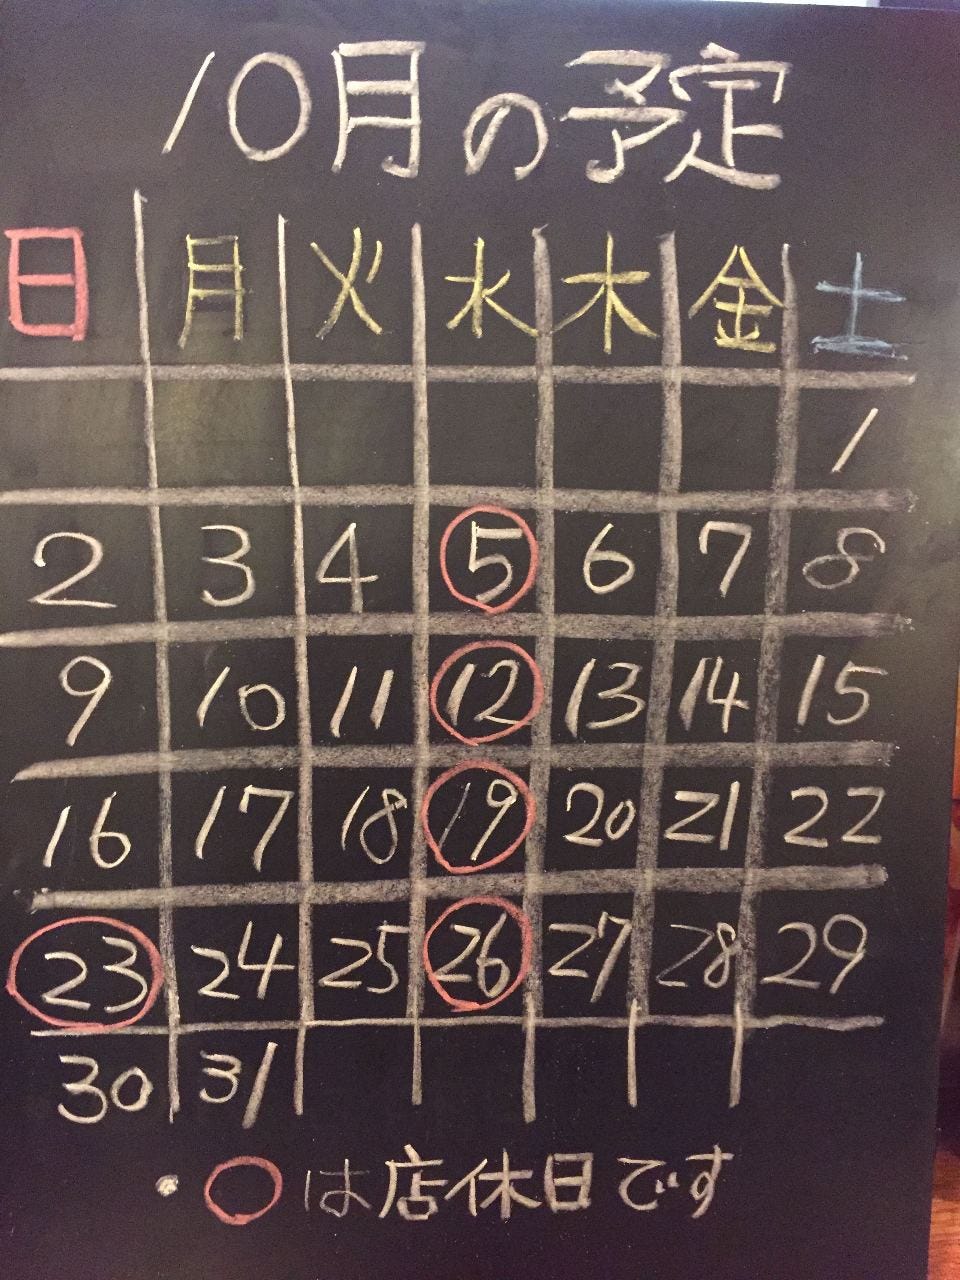 10月の予定
日 月 火 水 木 金 土
1
2 3 4 5 6 7 8
9 10 11 12 13 14 15
16 17 18 19 20 21 22
23 24 25 26 27 28 29
30 31
・○は店休日です